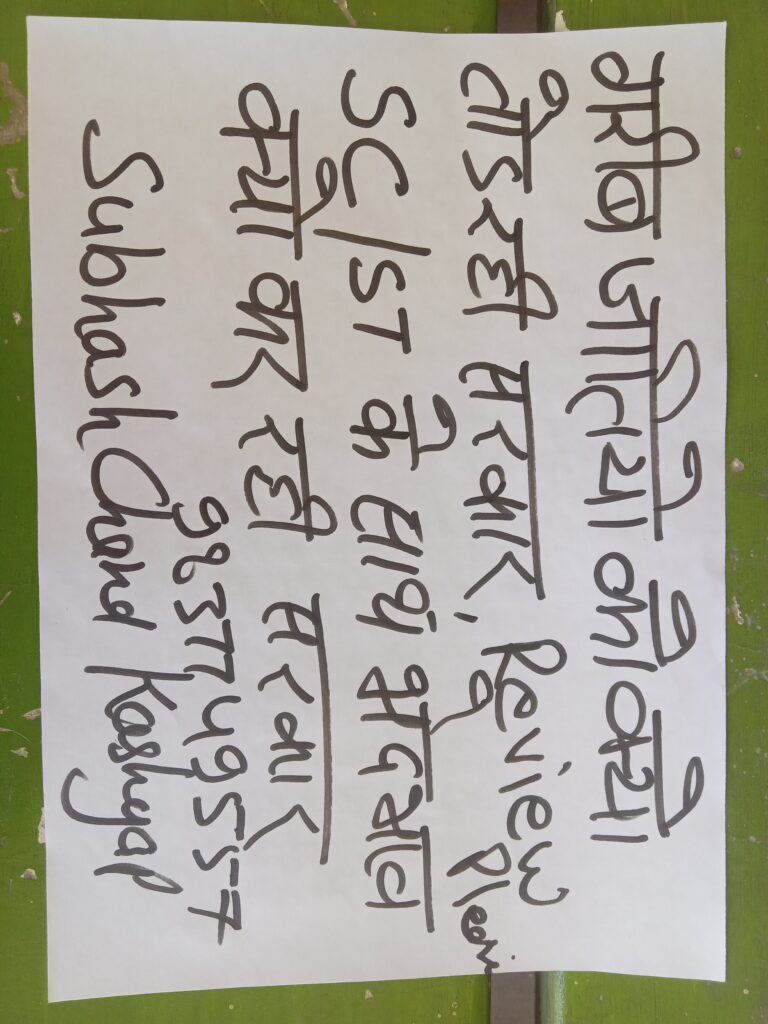 गरीब जातियो को क्यो
तोड रही सरकार, Review Please
SC/ST के साथ भेदभाव
क्यो कर रही सरकार
9637749557
Subhash Chand Kashyap